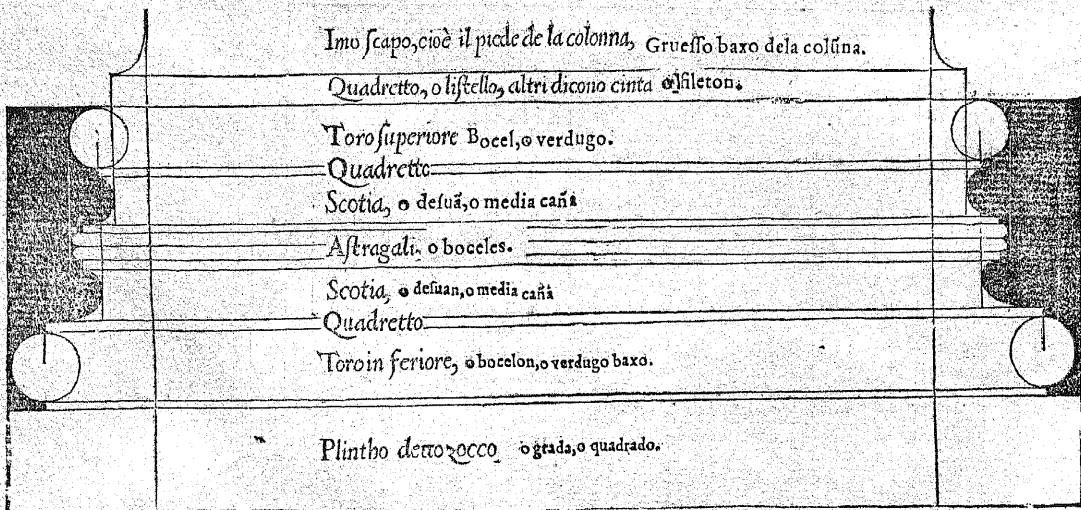 Imo ſcapo, cioè il piede de la colonna, Grueſſo baxo dela colũna.
Quadretto, o liſtello, altri dicono cinta o fileton.
Toro ſuperiore Bocel, o verdugo.
Quadretto
Scotia, o deſuã, o media caña
Aſtragali. o boceles.
Scotia, o deſuan, o media caña
Quadretto
Toro in feriore, o bocelon, o verdugo baxo.
Plintho detto zocco o grada, o quadrado.